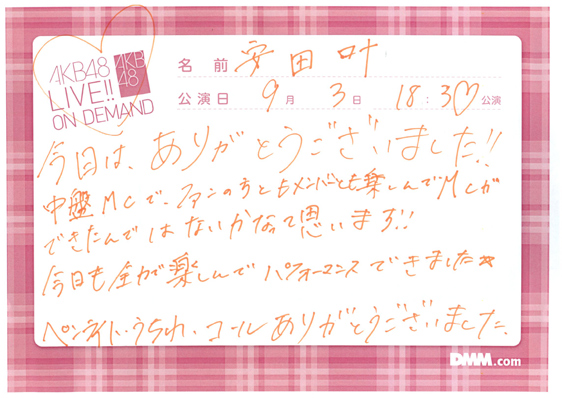 AKB48
LIVE!!
ON DEMAND
AKB
48
名前 安田叶
公演日 9月 3日 18:30公演
今日は、ありがとうございました!!
中盤MCで、ファンの方ともメンバーとも楽しんでMCが
できたんではないかなって思います!!
今日も全力で楽しんでパフォーマンスできました☆
ペンライト、うちわ、コールありがとうございました。
DMM.com